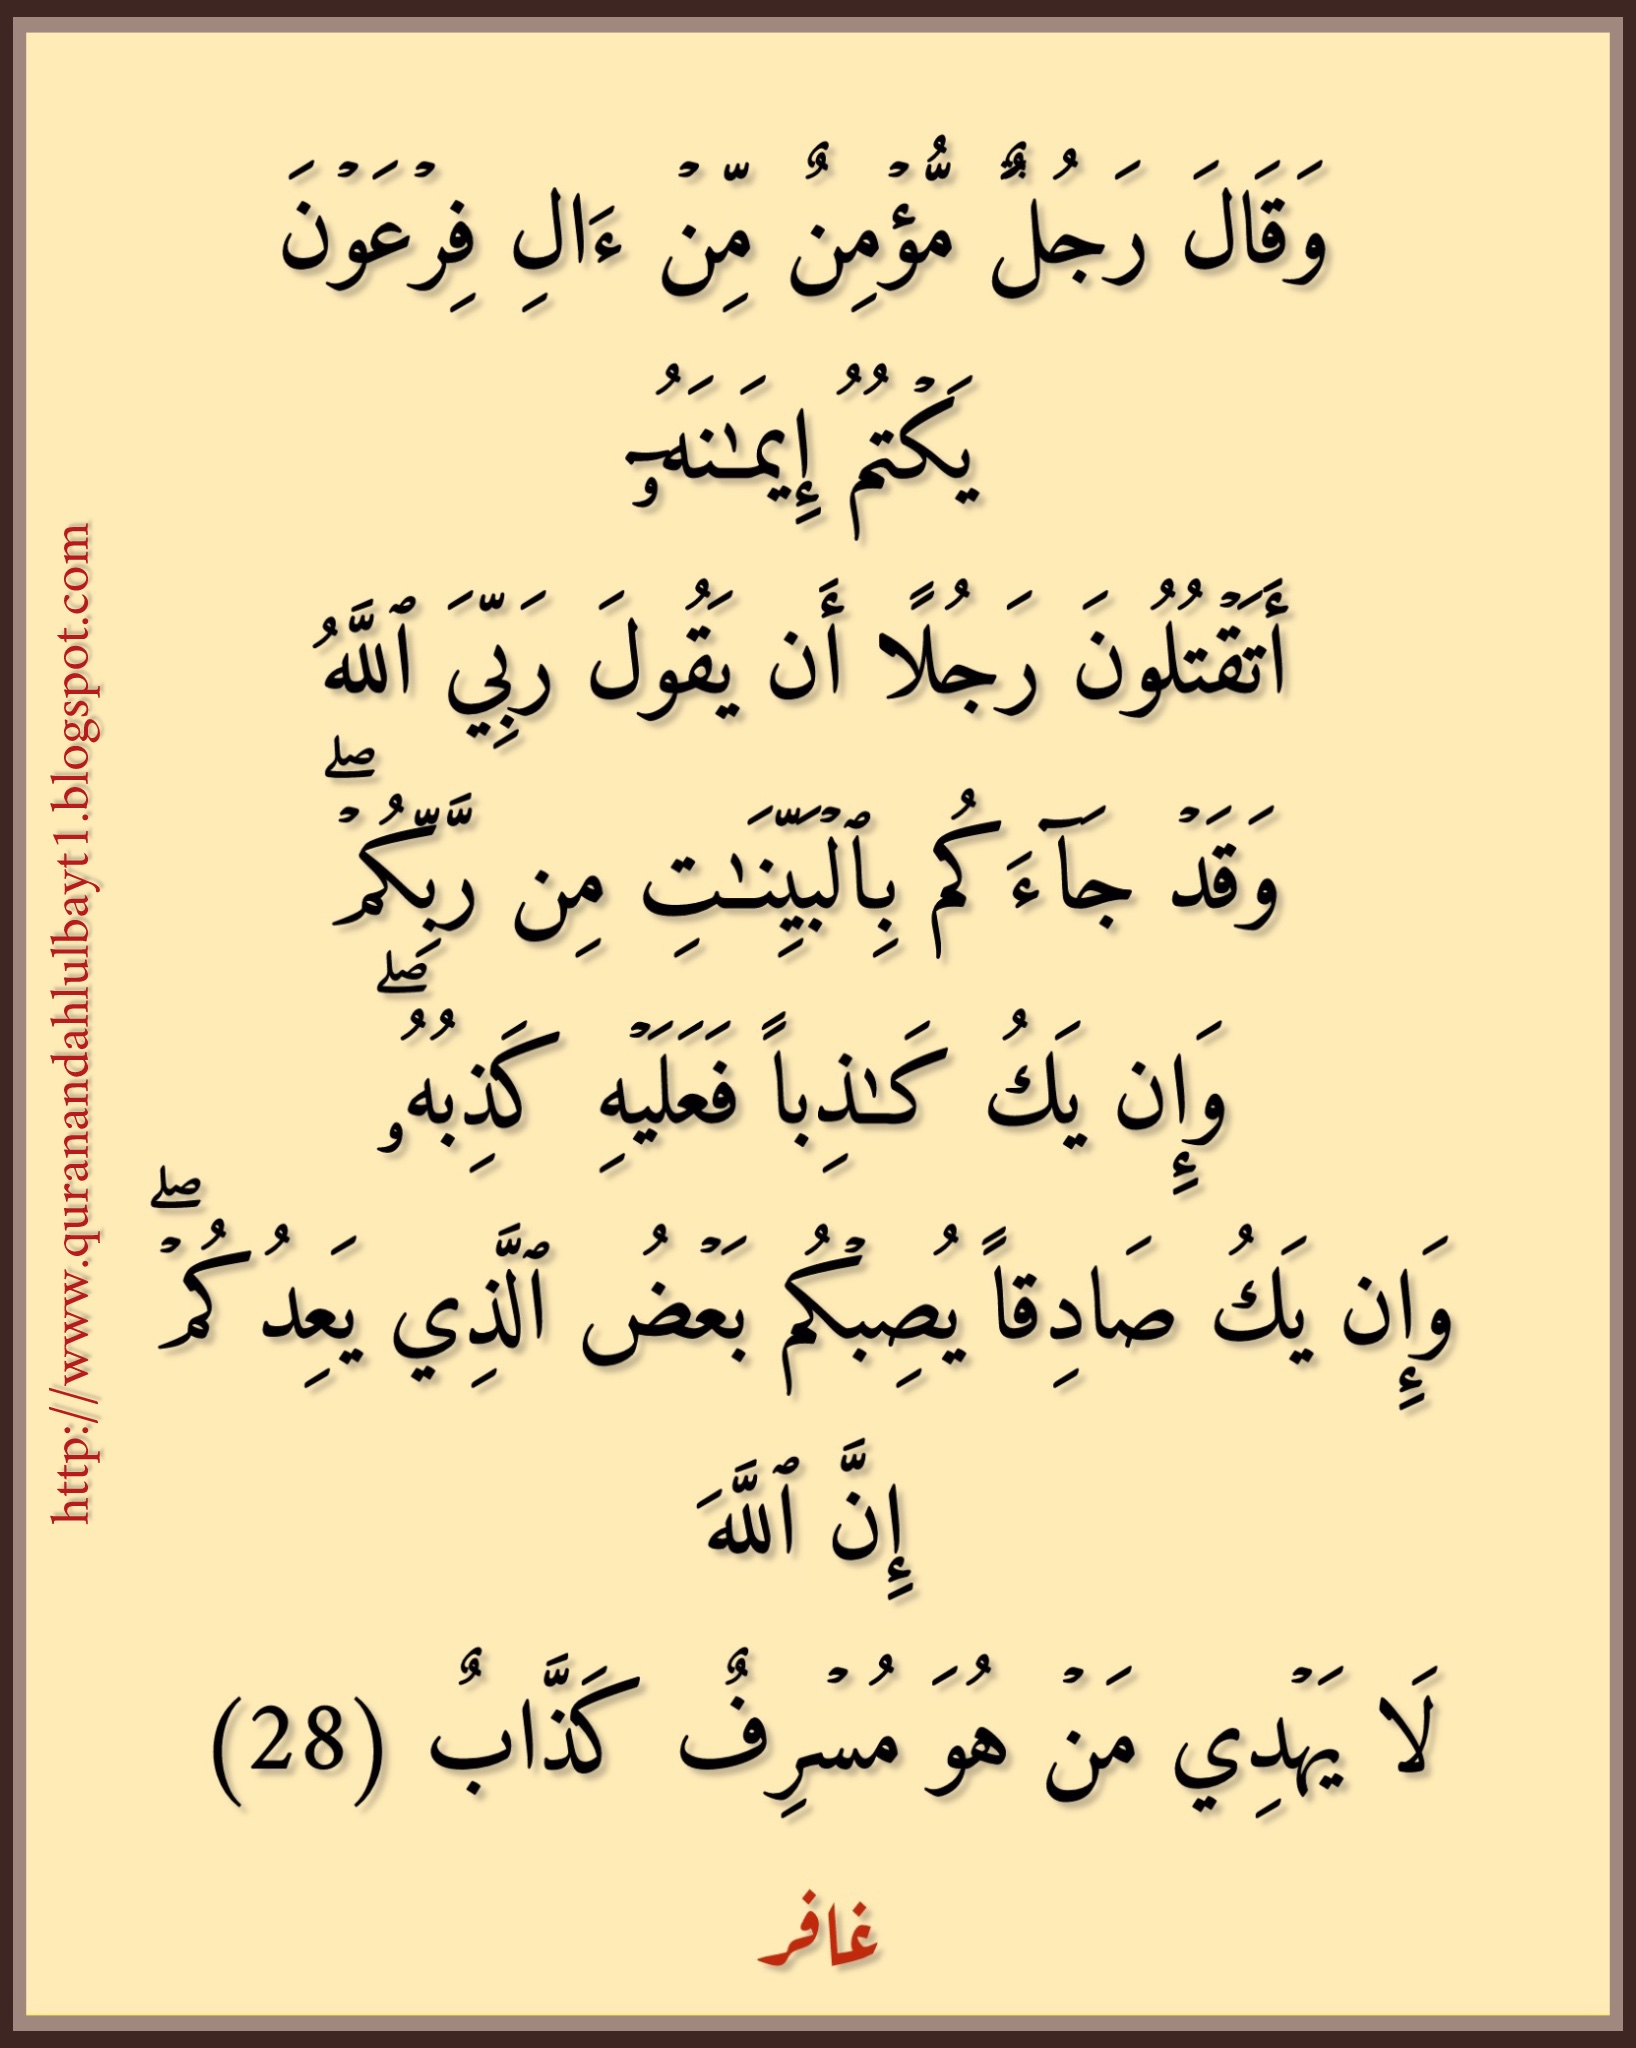 وَقَالَ رَجُلٌ مُّؤۡمِنٌ مِّنۡ ءَالِ فِرۡعَوۡنَ
يَكۡتُمُ إِيمَـٰنَهُۥٓ
أَتَقۡتُلُونَ رَجُلًا أَن يَقُولَ رَبِّيَ ٱللَّهُ
وَقَدۡ جَآءَكُم بِٱلۡبَيِّنَـٰتِ مِن رَّبِّكُمۡۖ
وَإِن يَكُ كَـٰذِباً فَعَلَيۡهِ كَذِبُهُۥۖ
وَإِن يَكُ صَادِقاً يُصِبۡكُم بَعۡضُ ٱلَّذِي يَعِدُكُمۡۖ
إِنَّ ٱللَّهَ
لَا يَهۡدِي مَنۡ هُوَ مُسۡرِفٌ كَذَّابٌ (28)
غافر
http://www.quranandahlulbayt1.blogspot.com